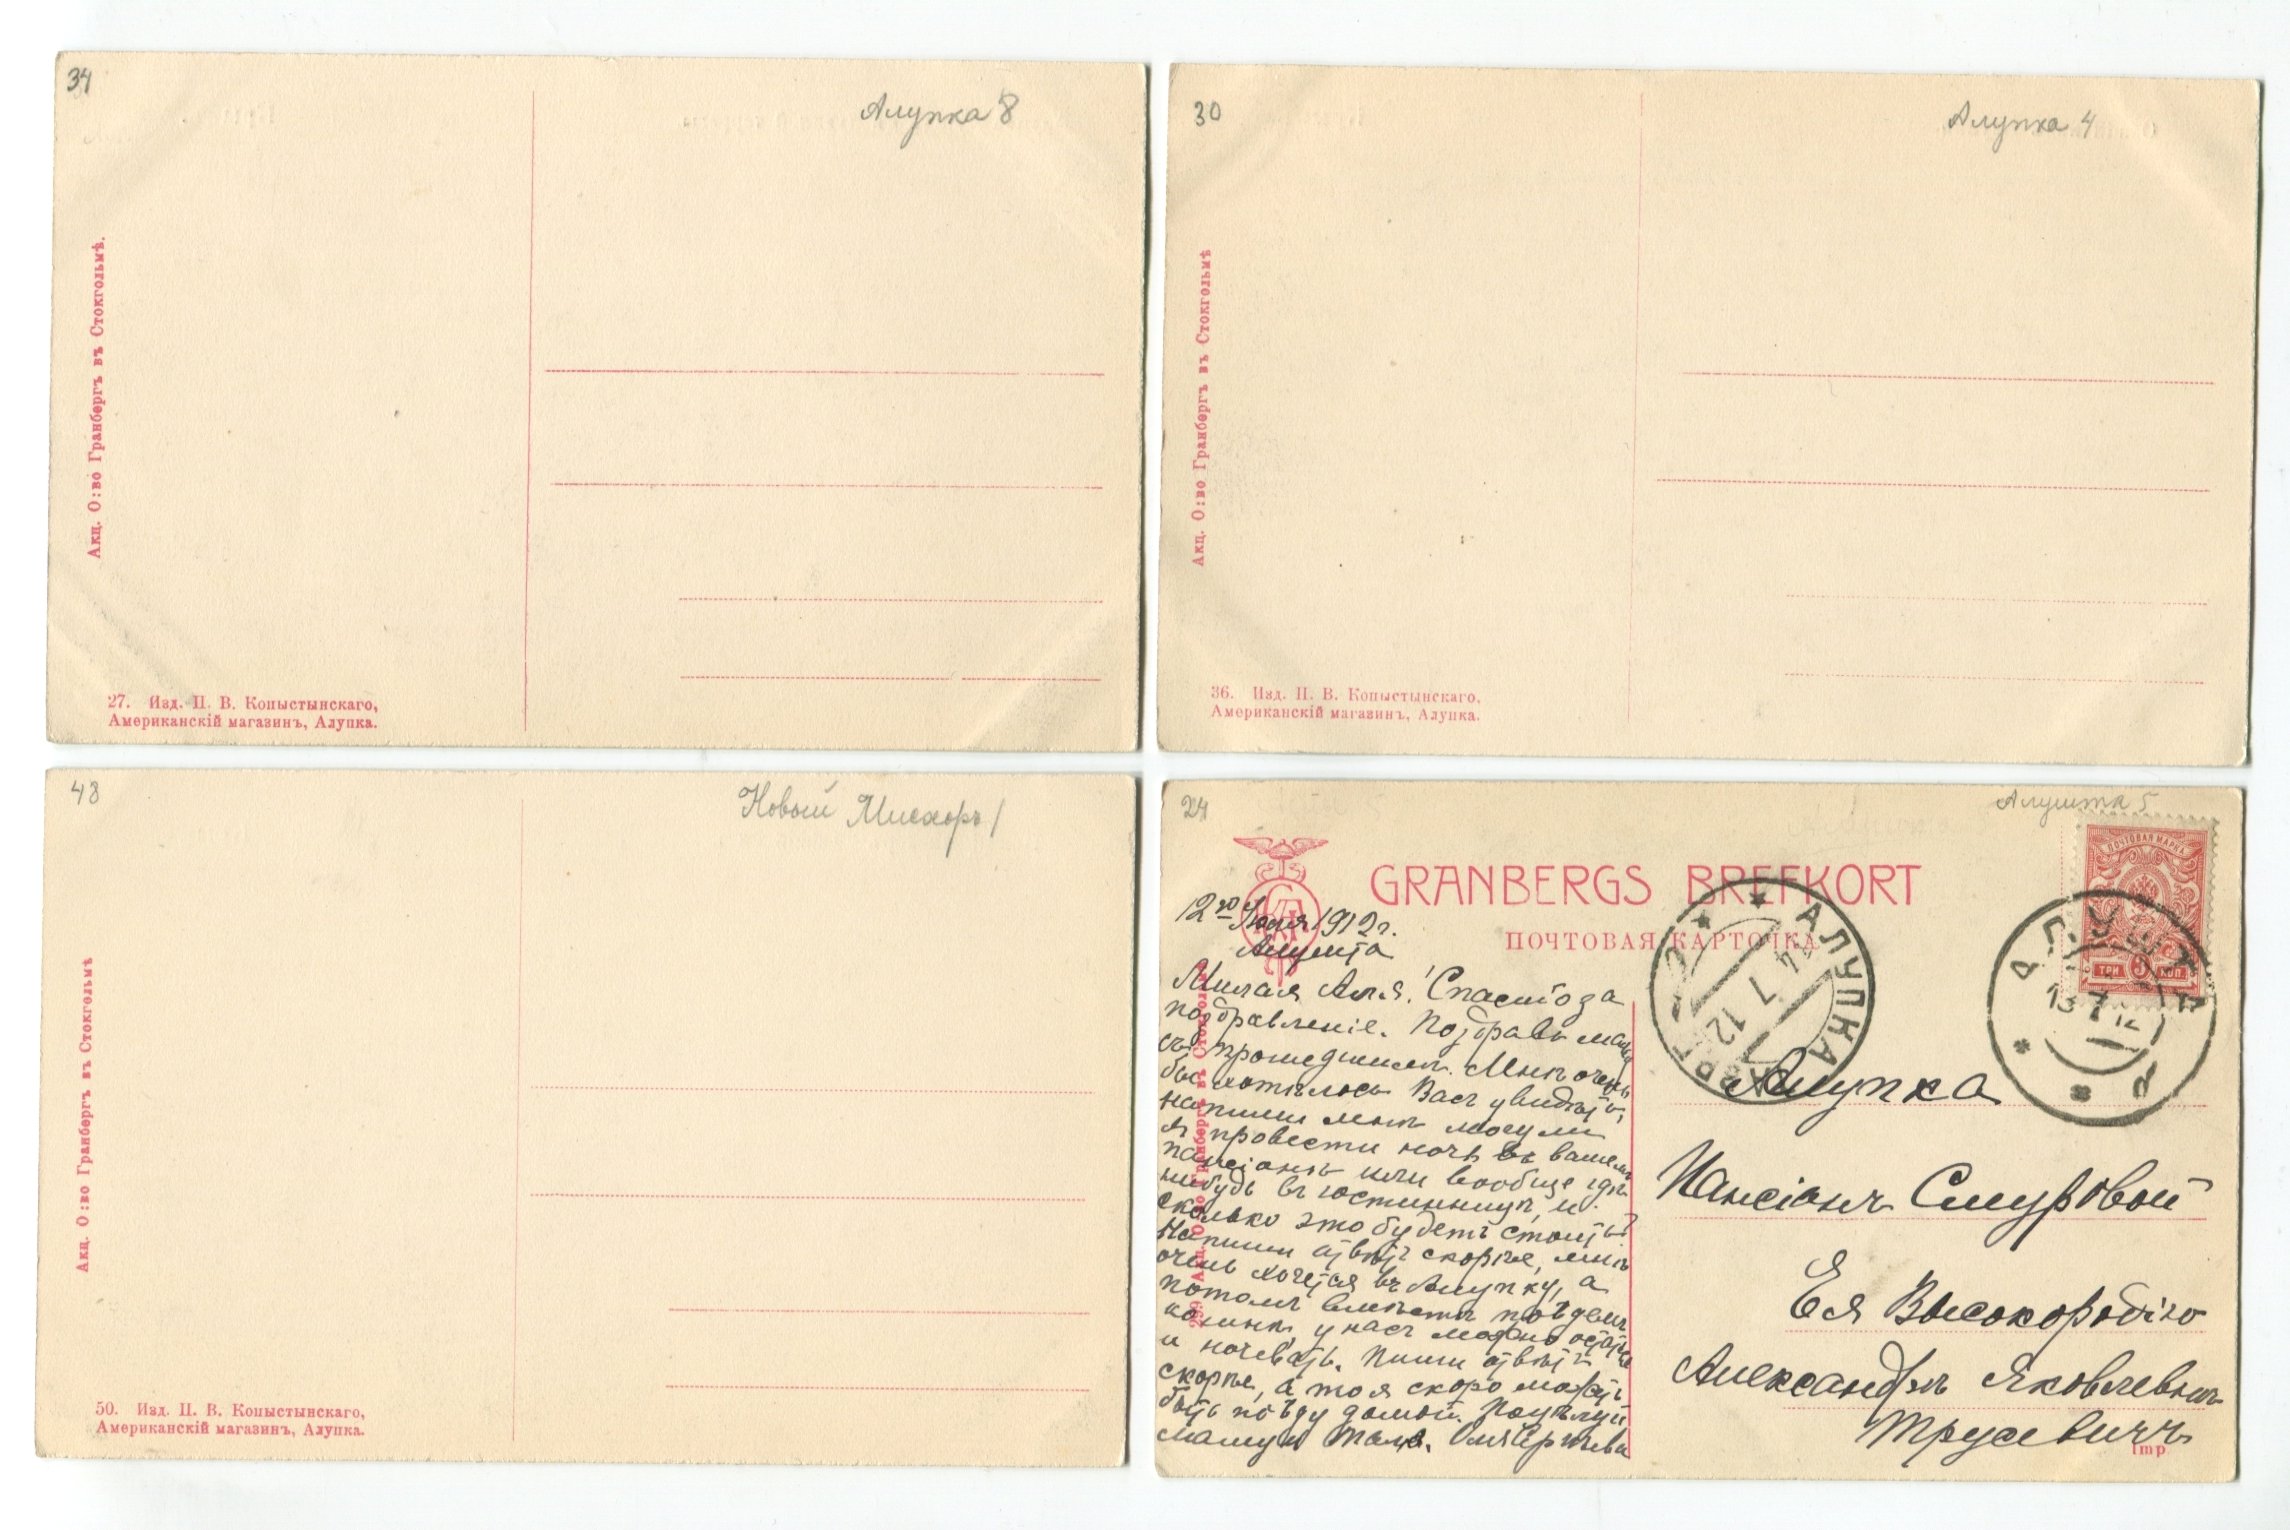 34
Алупка 8
Акц. О:во Гранбергъ въ Стокгольмѣ.
27. Изд. П. В. Копыстынскаго,
Американскій магазинъ, Алупка.
30
Алупка 4
Акц. О:во Гранбергъ въ Стокгольмѣ
36. Изд. П. В. Копыстынскаго,
Американскій магазинъ, Алупка.
48
Новый Мисхоръ 1
Акц. О:во Гранбергъ въ Стокгольмѣ
50. Изд. П. В. Копыстынскаго,
Американскій магазинъ, Алупка.
24
Алушта 5
ПОЧТОВАЯ МАРКА
ТРИ 3 КОП
GRANBERGS BREFKORT
ПОЧТОВАЯ КАРТОЧКА
АЛУПКА
14 7 12
АЛУШТА
13 7 12
12го Іюля 1912 г.
Алушта
Милая Аля! Спасибо за
поздравленіе. Поздравь
съ прошедшимъ. Мнѣ очень
бы хотѣлось Васъ увидѣть,
напиши мнѣ могу ли
я провести ночь въ вашемъ
пансіонѣ или вообще гдѣ
нибудь въ гостинницѣ, и
сколько это будетъ стоить?
Напиши отвѣтъ скорѣе, мнѣ
очень хочется въ Алупку, а
потомъ вмѣстѣ поѣдемъ
ко мнѣ, у насъ можно остаться
и ночевать. Пиши отвѣтъ
скорѣе, а то я скоро можетъ
быть поѣду домой. Поцѣлуй
маму и
299 Акц. О:во Гранбергъ въ Стокгольмѣ
Алупка
Пансіонъ Смуровой
Ея Высокородію
Александрѣ Яковлевнѣ
Трусевичъ
Imp.